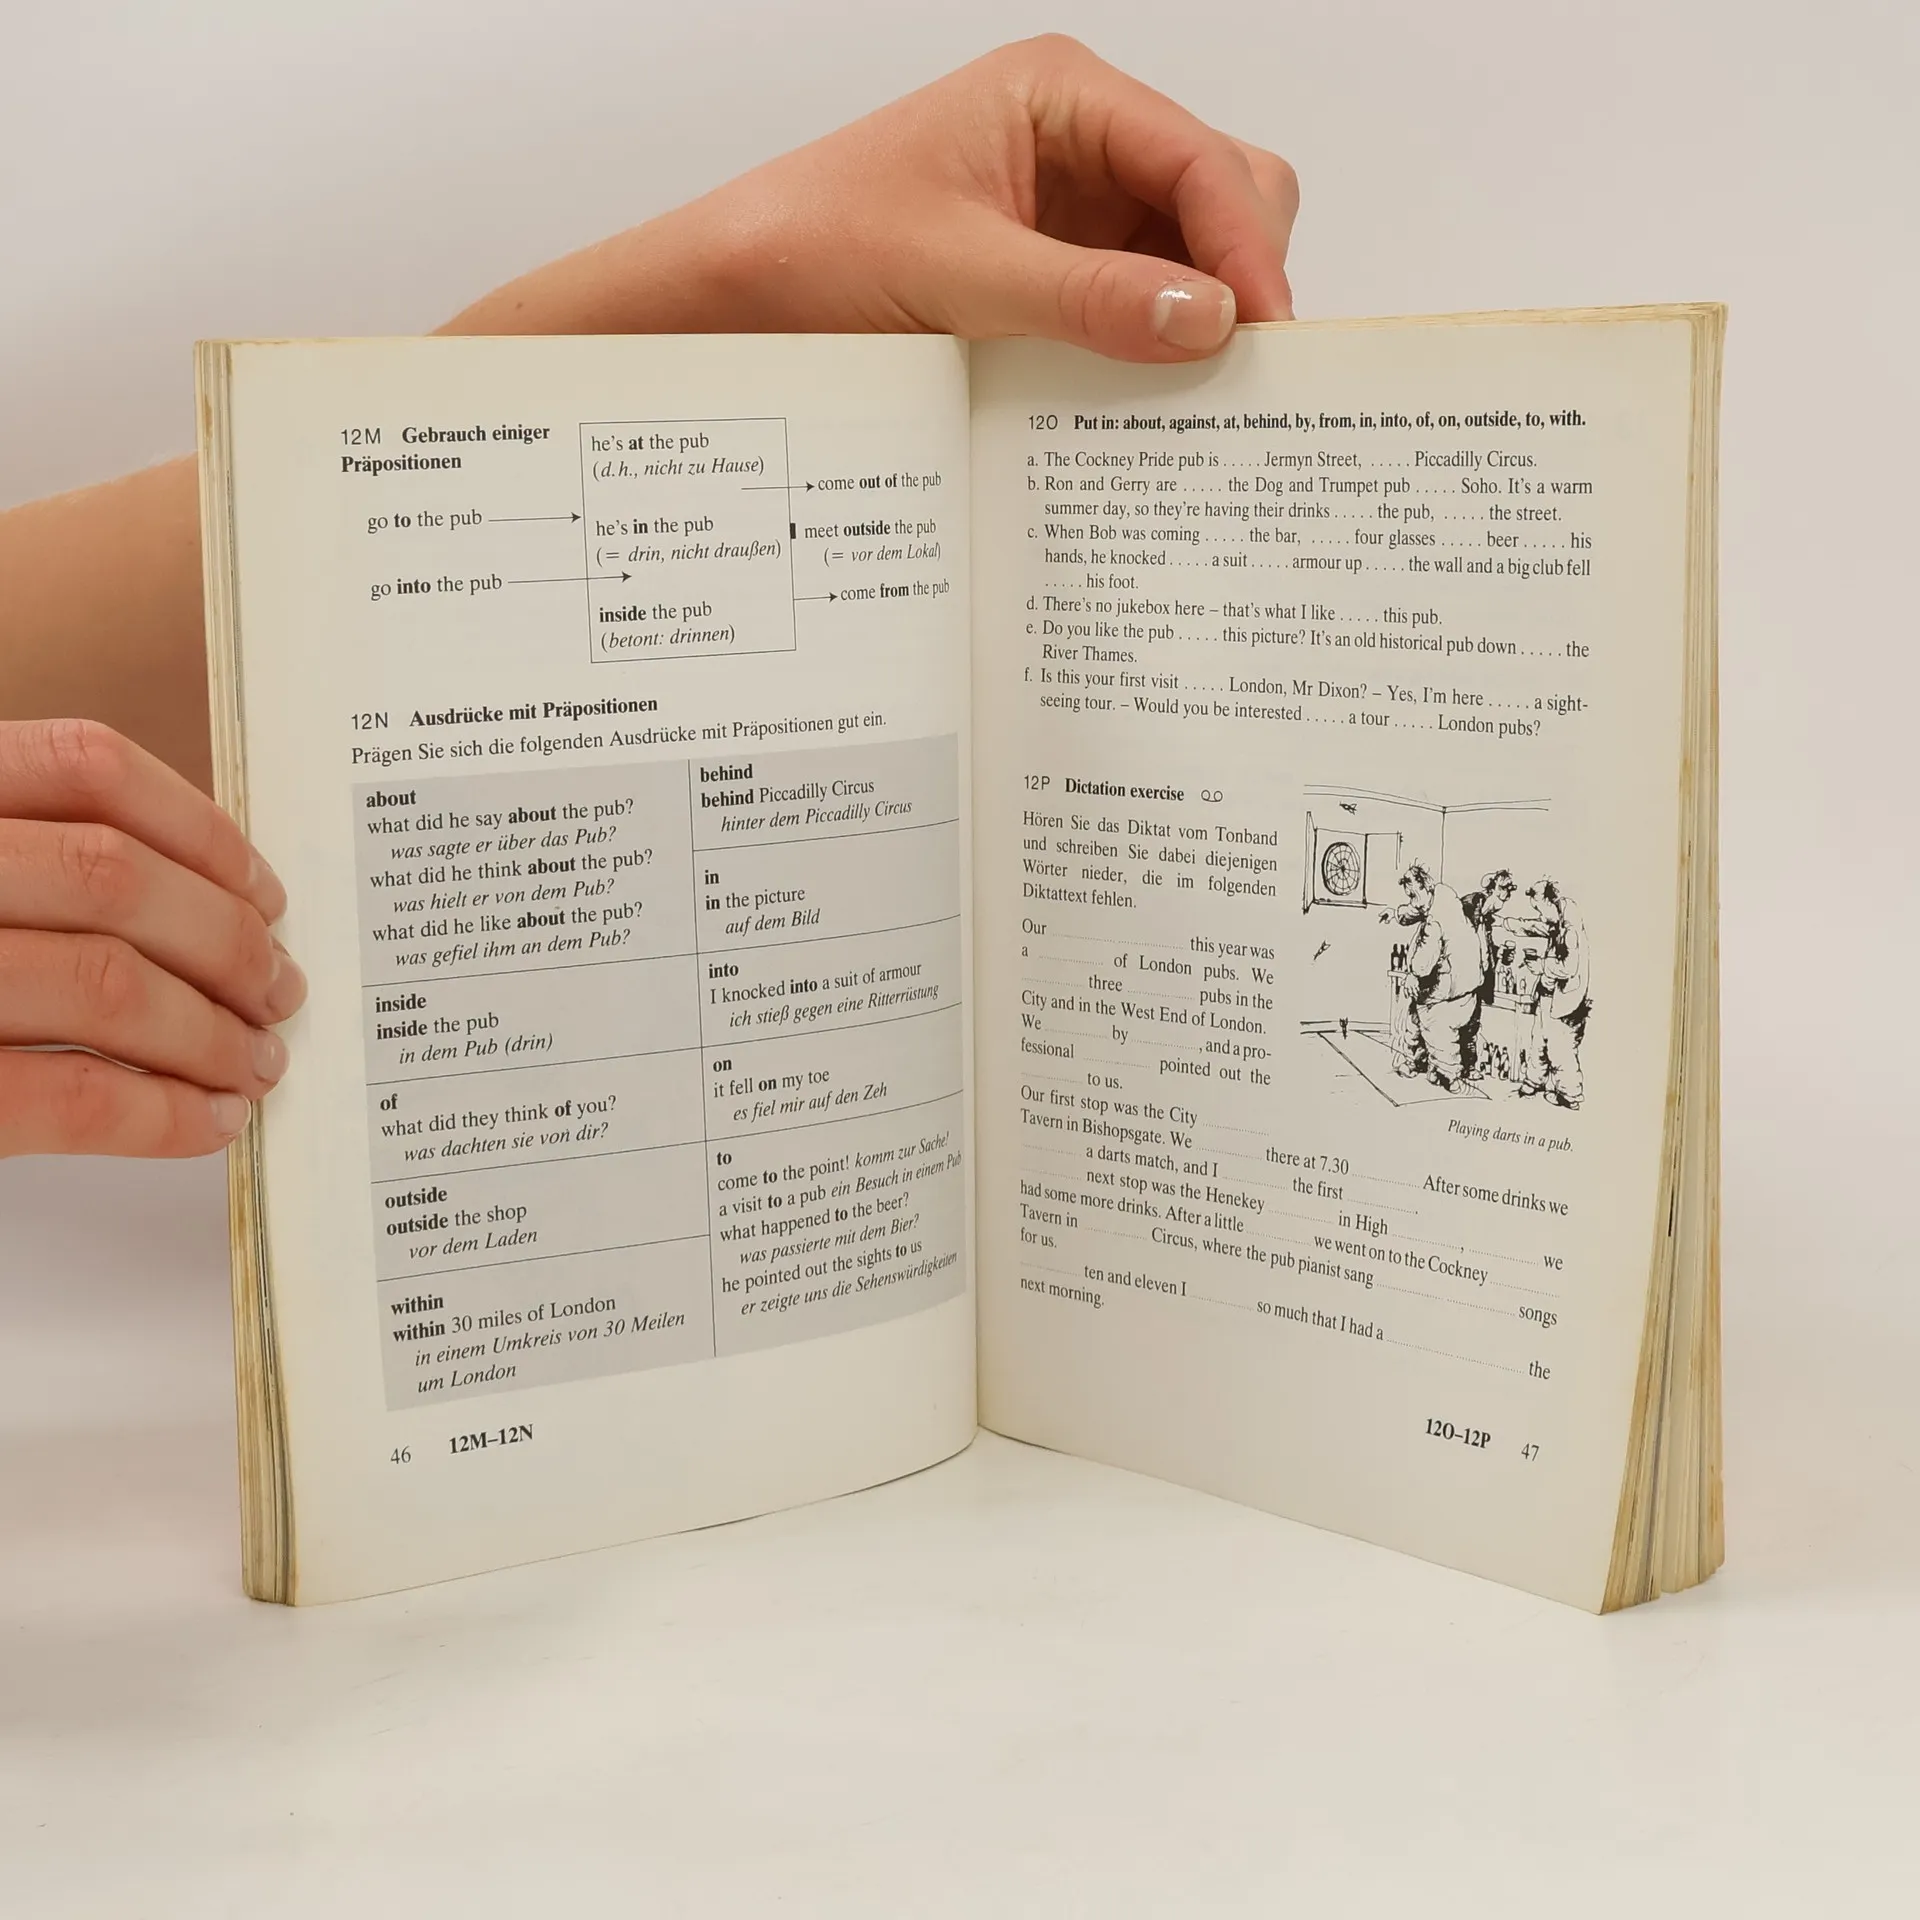 12M Gebrauch einiger
Präpositionen
go to the pub
go into the pub
he's at the pub
(d.h., nicht zu Hause)
he's in the pub
(= drin, nicht draußen)
inside the pub
(betont: drinnen)
come out of the pub
meet outside the pub
(= vor dem Lokal)
come from the pub
12N Ausdrücke mit Präpositionen
Prägen Sie sich die folgenden Ausdrücke mit Präpositionen gut ein.
about
what did he say about the pub?
was sagte er über das Pub?
what did he think about the pub?
was hielt er von dem Pub?
what did he like about the pub?
was gefiel ihm an dem Pub?
inside
inside the pub
in dem Pub (drin)
of
what did they think of you?
was dachten sie von dir?
outside
outside the shop
vor dem Laden
within
within 30 miles of London
in einem Umkreis von 30 Meilen
um London
behind
behind Piccadilly Circus
hinter dem Piccadilly Circus
in
in the picture
auf dem Bild
into
I knocked into a suit of armour
ich stieß gegen eine Ritterrüstung
on
it fell on my toe
es fiel mir auf den Zeh
to
come to the point! komm zur Sache!
a visit to a pub ein Besuch in einem Pub
what happened to the beer?
was passierte mit dem Bier?
he pointed out the sights to us
er zeigte uns die Sehenswürdigkeiten
46 12M–12N
12O Put in: about, against, at, behind, by, from, in, into, of, on, outside, to, with.
a. The Cockney Pride pub is ..... Jermyn Street, ..... Piccadilly Circus.
b. Ron and Gerry are ..... the Dog and Trumpet pub ..... Soho. It's a warm
summer day, so they're having their drinks ..... the pub, ..... the street.
c. When Bob was coming ..... the bar, ..... four glasses ..... beer ..... his
hands, he knocked ..... a suit ..... armour up ..... the wall and a big club fell
..... his foot.
d. There's no jukebox here – that's what I like ..... this pub.
e. Do you like the pub ..... this picture? It's an old historical pub down ..... the
River Thames.
f. Is this your first visit ..... London, Mr Dixon? – Yes, I'm here ..... a sight-
seeing tour. – Would you be interested ..... a tour ..... London pubs?
12P Dictation exercise
Hören Sie das Diktat vom Tonband
und schreiben Sie dabei diejenigen
Wörter nieder, die im folgenden
Diktattext fehlen.
Our ..... this year was
a ..... of London pubs. We
..... three ..... pubs in the
City and in the West End of London.
We ..... by ....., and a pro-
fessional ..... pointed out the
..... to us.
Our first stop was the City .....
Tavern in Bishopsgate. We ..... there at 7.30 ..... After some drinks we
..... a darts match, and I ..... the first .....
..... next stop was the Henekey ..... in High ....., ..... we
had some more drinks. After a little ..... we went on to the Cockney .....
Tavern in ..... Circus, where the pub pianist sang ..... songs
for us.
..... ten and eleven I ..... so much that I had a ..... the
next morning.
Playing darts in a pub.
12O–12P 47